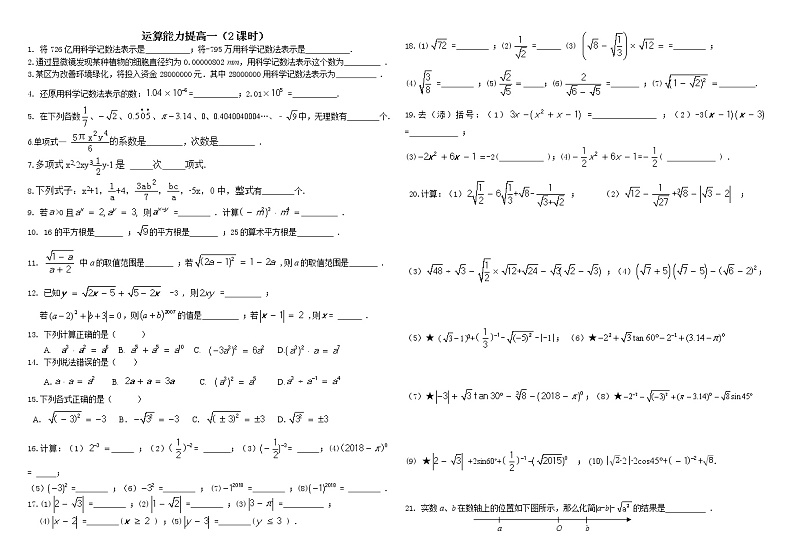 运算能力提高一（2课时）
1. 将726亿用科学记数法表示是__________；将-795万用科学记数法表示是__________.
2.通过显微镜发现某种植物的细胞直径约为0.00000802 mm,用科学记数法表示这个数为________ .
3.某区为改善环境绿化，将投入资金28000000元．其中28000000用科学记数法表示为________ .
4. 还原用科学记数法表示的数：1.04×10⁻⁶=________；2.01×10⁵ =__________.
5. 在下列各数 1/7、-√2、0.5̇05̇、π-3.14、0、0.4040040004…、-√9中,无理数有_______个.
6.单项式— 5πx²y⁴/6的系数是________,次数是________ .
7.多项式x²-2xy³-1/2y-1是 _____次_____项式.
8.下列式子：x²+1, 1/a+4, 3ab²/7, bc/a, -5x, 0中,整式有_______个.
9. 若a>0且aˣ=2,aʸ=3, 则aˣ⁺ʸ=_______ .计算(-m²)³·m⁴=________ .
10. 16的平方根是______ ；√9的平方根是______ ；25的算术平方根是________ .
11. √(1-a)/(a+2) 中a的取值范围是______ ；若√((2a-1)²) = 1-2a ,则a的取值范围是______ .
12. 已知y=√(2x-5)+√(5-2x) -3 , 则2xy =________ ；
若(a-2)²+|b+3|=0,则(a+b)²⁰⁰⁷的值是________ ；若|x-1| = 2 ,则x= ______ .
13. 下列计算正确的是（ ）
A. a³·a²=a⁶ B. a⁵+a⁵=a¹⁰ C. (-3a³)²=6a² D.(a³)²·a=a⁷
14. 下列说法错误的是（ ）
A.a·a=a² B. 2a+a=3a C. (a³)²=a⁵ D.a³÷a⁻¹=a⁴
15.下列各式正确的是（ ）
A. √((-3)²)=-3 B. -√3²=-3 C. √((±3)²)=±3 D.√3²=±3
16.计算：（1）2⁻³ =_____ ；（2）(1/2)⁻²= ______；（3）(-1/2)⁻³= _____；(4)(2018-π)⁰
= _____；
（5）(-3)² =_______ ；（6）-3² =_______ ；（7）-1²⁰¹⁸ =________ ；（8）(-1)²⁰¹⁸ = _______ .
17.(1)|2-√3| =________ ；(2)|1-√2| =________ ；(3)|3-π| =_________ ；
(4)|x-2| =_______(x≥2 )；(5)|y-3| =_______(y≤3 ) .
18.(1)√72 =_______ ；(2)1/√2 =_____ (3) (√8-√(1/3))×√12 = =_______ ；
(4)√(3/8) = _______ ；(5)√2/√5 =____；(6)2/(√6-√5) = ______ ；(7)√((1-√2)²) =_______.
19.去（添）括号：（1）3x-(x²+x-1) =____________ ；（2）-3(x-1)(x-3)
=_________ ；
(3)-2x²+6x-1=-2(________ )；(4)-1/2x²+6x-1=-1/2( _________ ) .
20.计算：（1）2√(1/2)-6√(1/3)+√8-1/(√3+√2) ； （2）√12-1/√27+³√8-|√3-2| ；
（3）√48÷√3-√(1/2)×√12+√24-√3(√2-√3) ；（4）(√7+5)(√7-5)-(√6-2)²；
（5）★(√3-1)⁰+(1/3)⁻¹-√((-5)²)-|-1|； （6）★-2²+√3tan60°-2⁻¹+(3.14-π)⁰
（7）★|-3|+√3tan30°-³√8-(2018-π)⁰；（8）★-2⁻¹-√((-3)²)+(π-3.14)⁰-√8sin45°
(9) ★|2-√3|+2sin60°+(1/2)⁻¹-(√2015)⁰ ；（10）|√2-2|-2cos45°+(-1)⁻²+√8.
21. 实数a、b在数轴上的位置如下图所示，那么化简|a-b|-√a²的结果是_________ .
a O b